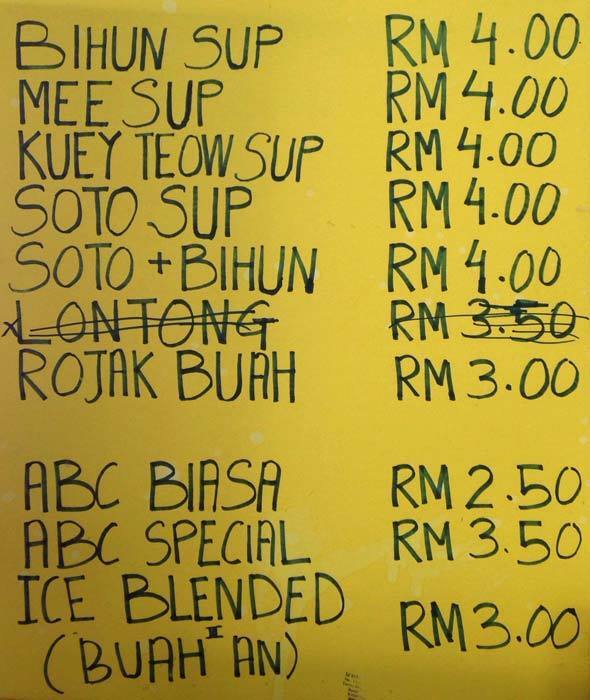 BIHUN SUP RM 4.00
MEE SUP RM 4.00
KUEY TEOW SUP RM 4.00
SOTO SUP RM 4.00
SOTO + BIHUN RM 4.00
LONTONG RM 3.50
ROJAK BUAH RM 3.00
ABC BIASA RM 2.50
ABC SPECIAL RM 3.50
ICE BLENDED RM 3.00
(BUAH² AN)